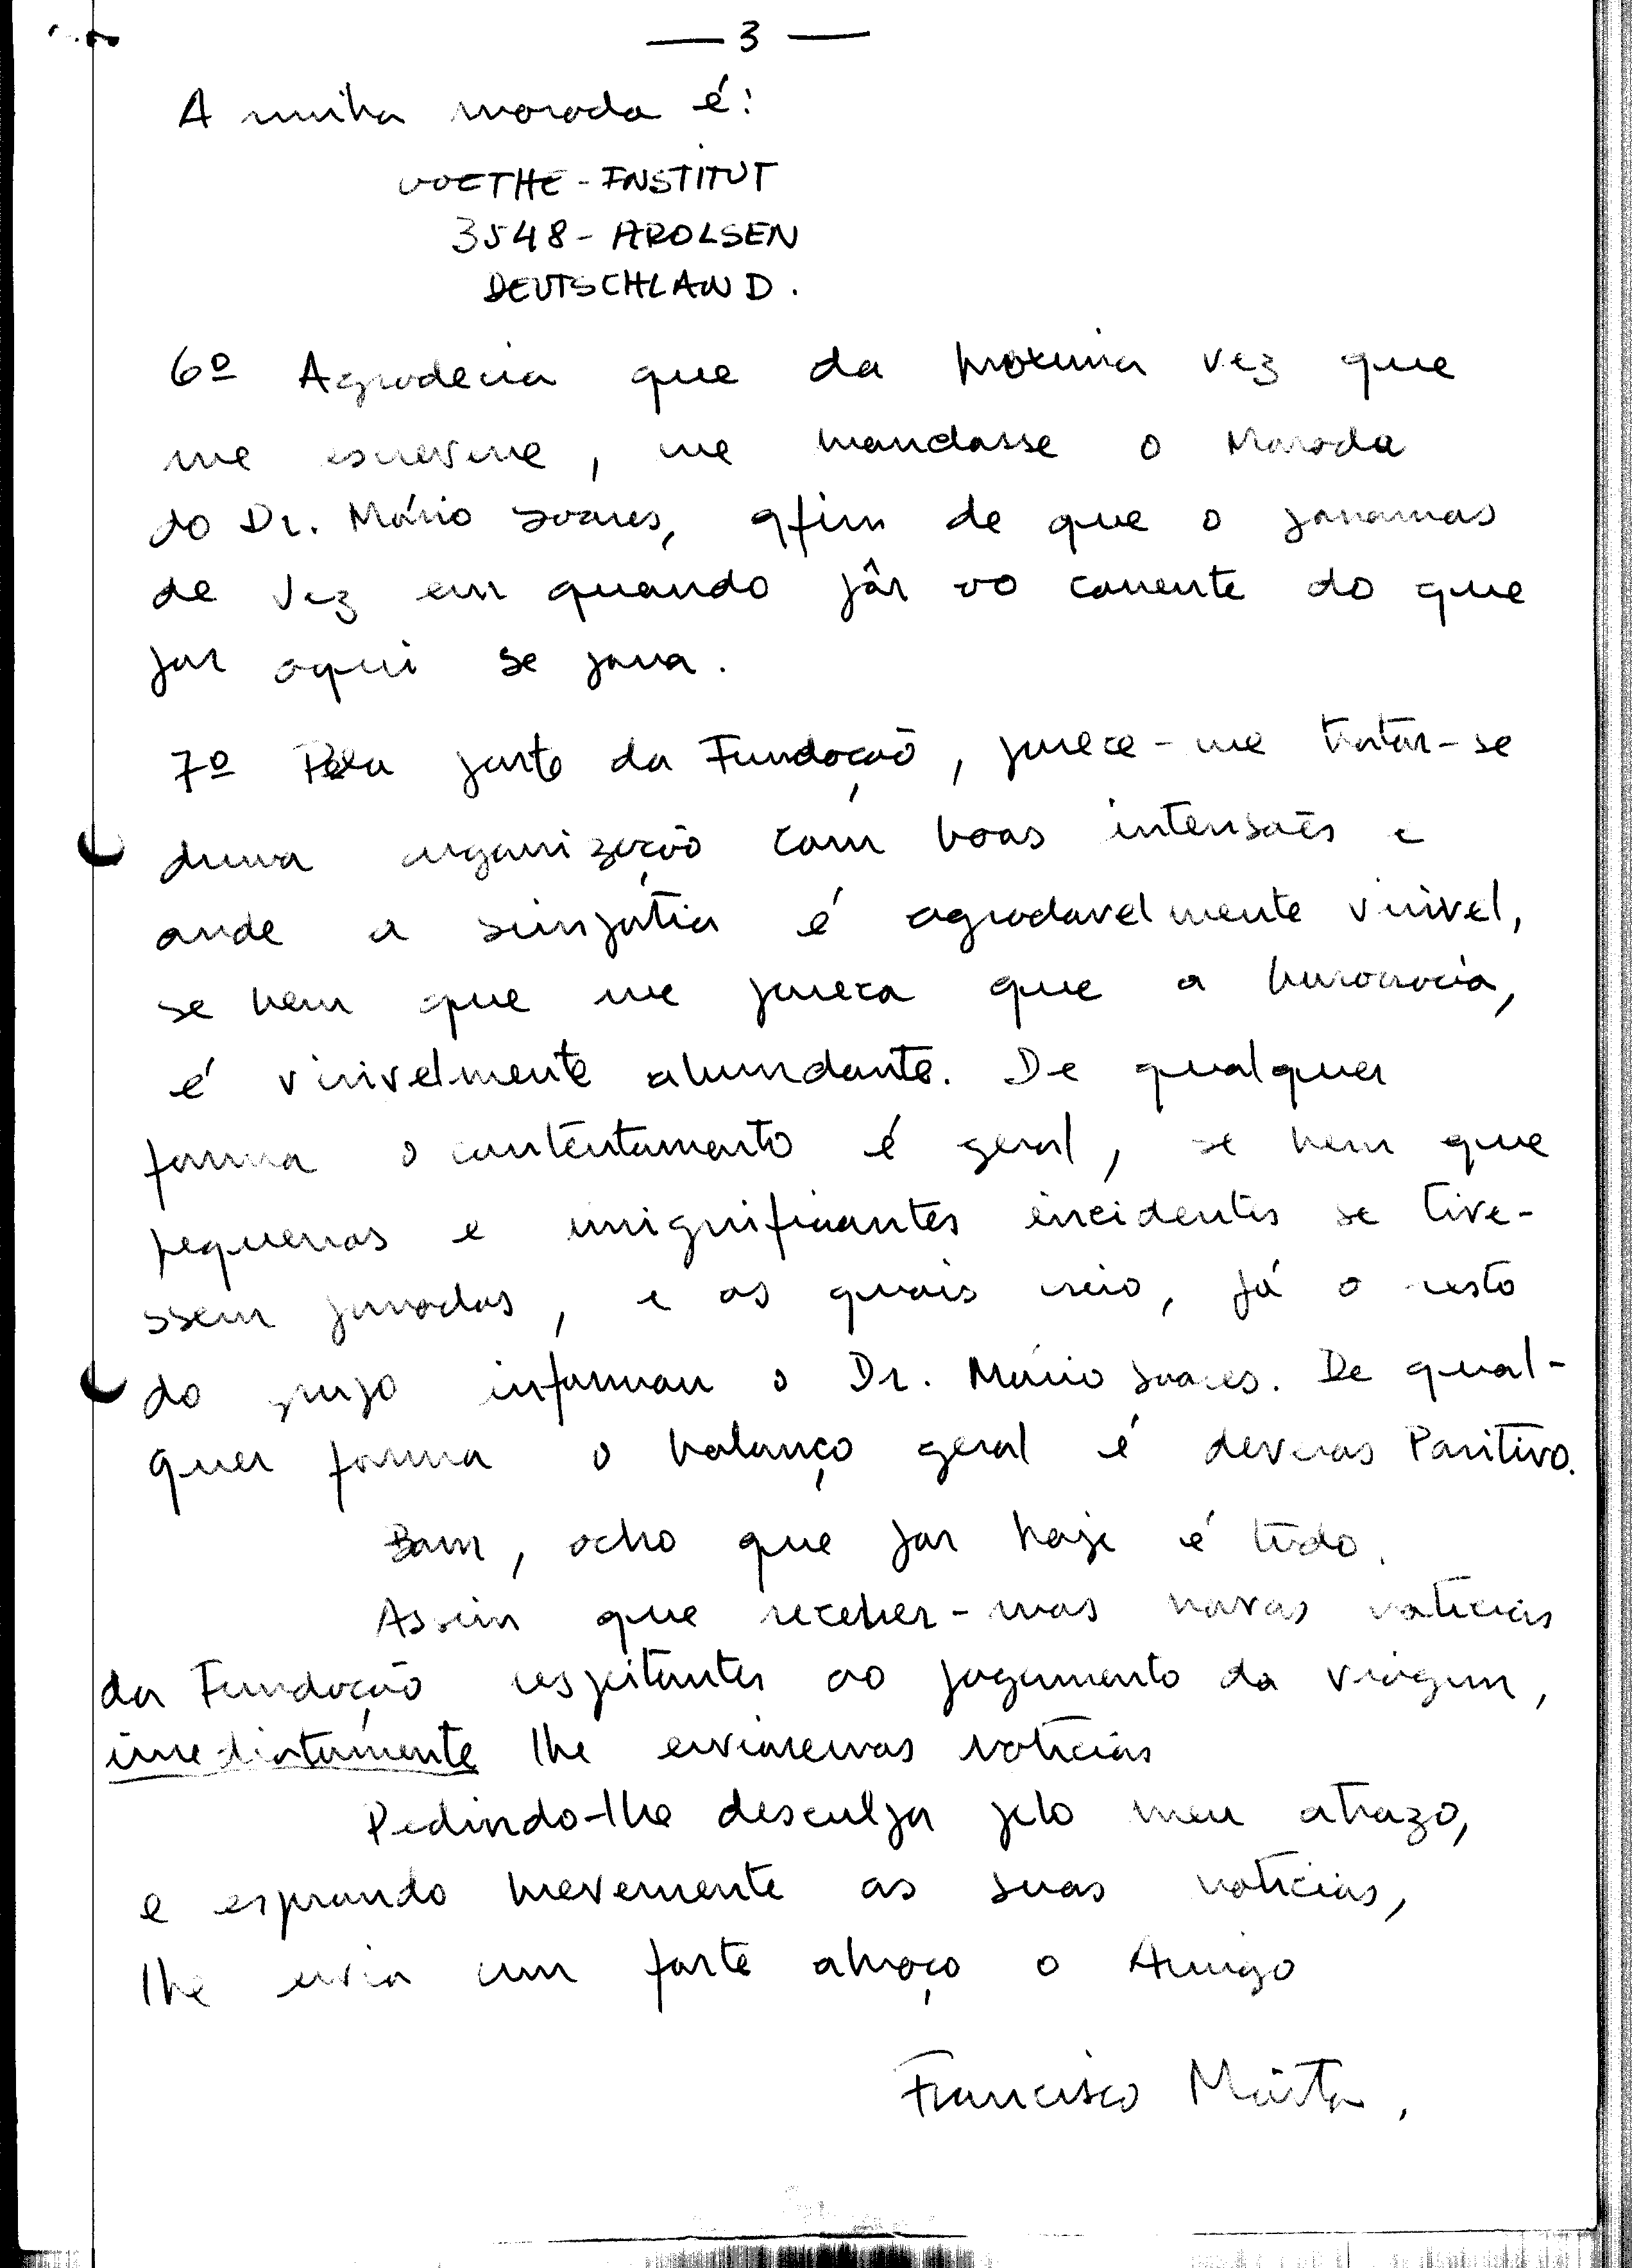 — 3 —
A minha morada é:
GOETHE-INSTITUT
3548-AROLSEN
DEUTSCHLAND.
6º Agradecia que da proxima vez que
me escrevesse, me mandasse a Morada
do Dr. Mário Soares, afim de que o possamos
de vez em quando pôr ao corrente do que
por aqui se passa.
7º Pela parte da Fundação, parece-me tratar-se
duma organização com boas intensões e
onde a simpatia é agradavelmente visivel,
se bem que me pareça que a burocracia,
é visivelmente abundante. De qualquer
forma o contentamento é geral, se bem que
pequenos e insignificantes incidentes se tive-
ssem passados, e os quais creio, já o resto
do grupo informou o Dr. Mário Soares. De qual-
quer forma o balanço geral é deveras Positivo.
Bom, acho que por hoje é tudo.
Assim que receber-mos novas noticias
da Fundação respeitantes ao pagamento da viagem,
imediatamente lhe enviaremos noticias
Pedindo-lhe desculpa pelo meu atrazo,
e esperando brevemente as suas noticias,
lhe envia um forte abraço o Amigo
Francisco